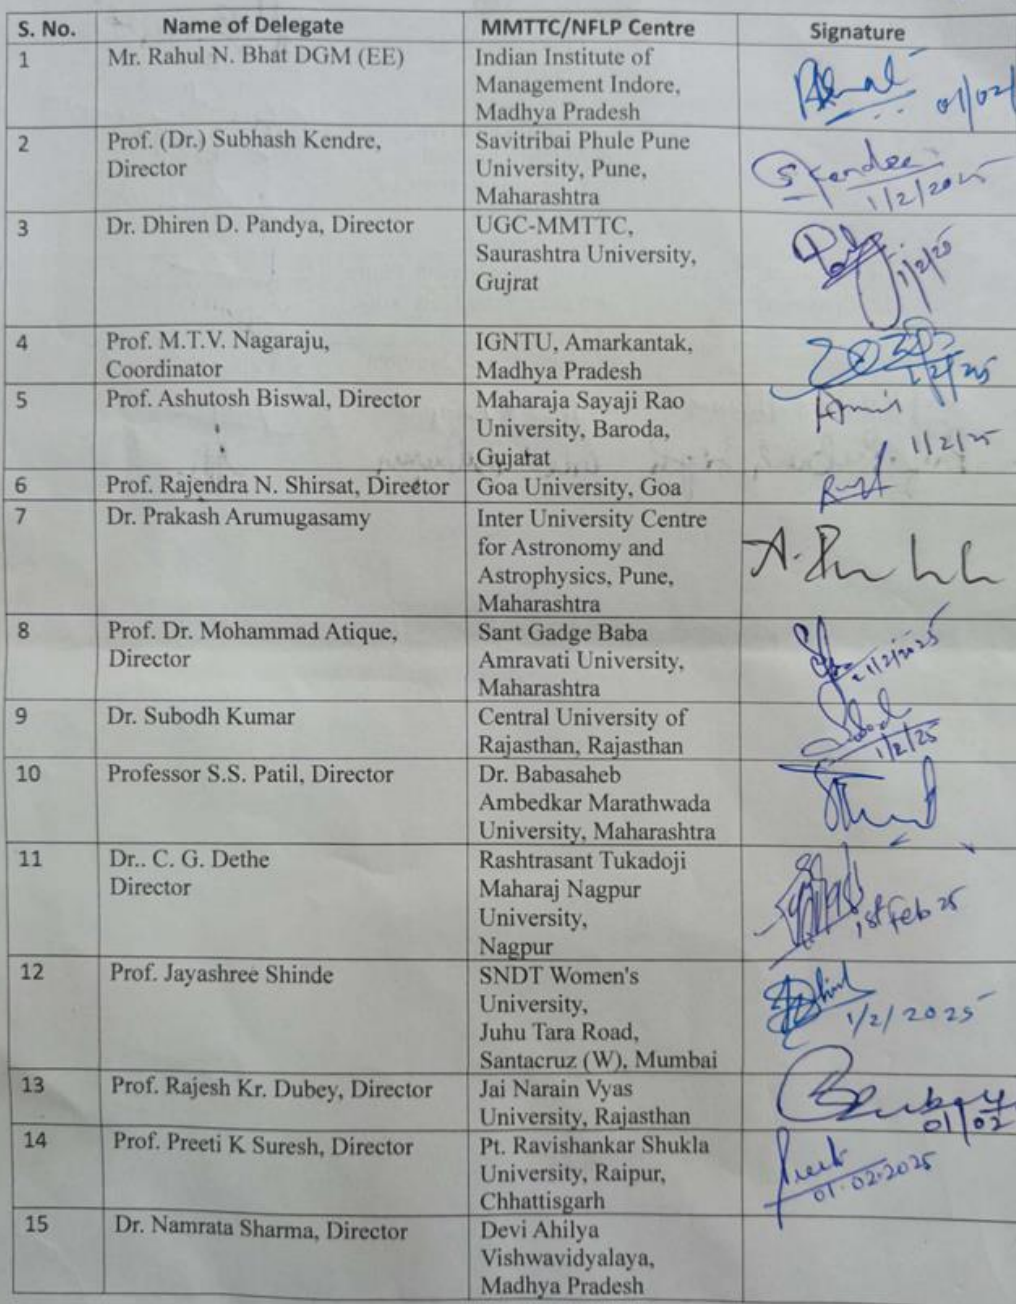 S. No. Name of Delegate MMTTC/NFLP Centre Signature
1 Mr. Rahul N. Bhat DGM (EE) Indian Institute of
Management Indore,
Madhya Pradesh
01/02/
2 Prof. (Dr.) Subhash Kendre, Savitribai Phule Pune
Director University, Pune,
Maharashtra
SKendre
1/2/2025
3 Dr. Dhiren D. Pandya, Director UGC-MMTTC,
Saurashtra University,
Gujrat
1/2/25
4 Prof. M.T.V. Nagaraju, IGNTU, Amarkantak,
Coordinator Madhya Pradesh
1/2/25
5 Prof. Ashutosh Biswal, Director Maharaja Sayaji Rao
University, Baroda,
Gujarat
1/2/25
6 Prof. Rajendra N. Shirsat, Director Goa University, Goa
7 Dr. Prakash Arumugasamy Inter University Centre
for Astronomy and
Astrophysics, Pune,
Maharashtra
8 Prof. Dr. Mohammad Atique, Sant Gadge Baba
Director Amravati University,
Maharashtra
1/2/2025
9 Dr. Subodh Kumar Central University of
Rajasthan, Rajasthan
1/2/25
10 Professor S.S. Patil, Director Dr. Babasaheb
Ambedkar Marathwada
University, Maharashtra
11 Dr.. C. G. Dethe Rashtrasant Tukadoji
Director Maharaj Nagpur
University,
Nagpur
1st Feb 25
12 Prof. Jayashree Shinde SNDT Women's
University,
Juhu Tara Road,
Santacruz (W), Mumbai
1/2/2025
13 Prof. Rajesh Kr. Dubey, Director Jai Narain Vyas
University, Rajasthan
01/02
14 Prof. Preeti K Suresh, Director Pt. Ravishankar Shukla
University, Raipur,
Chhattisgarh
01.02.2025
15 Dr. Namrata Sharma, Director Devi Ahilya
Vishwavidyalaya,
Madhya Pradesh